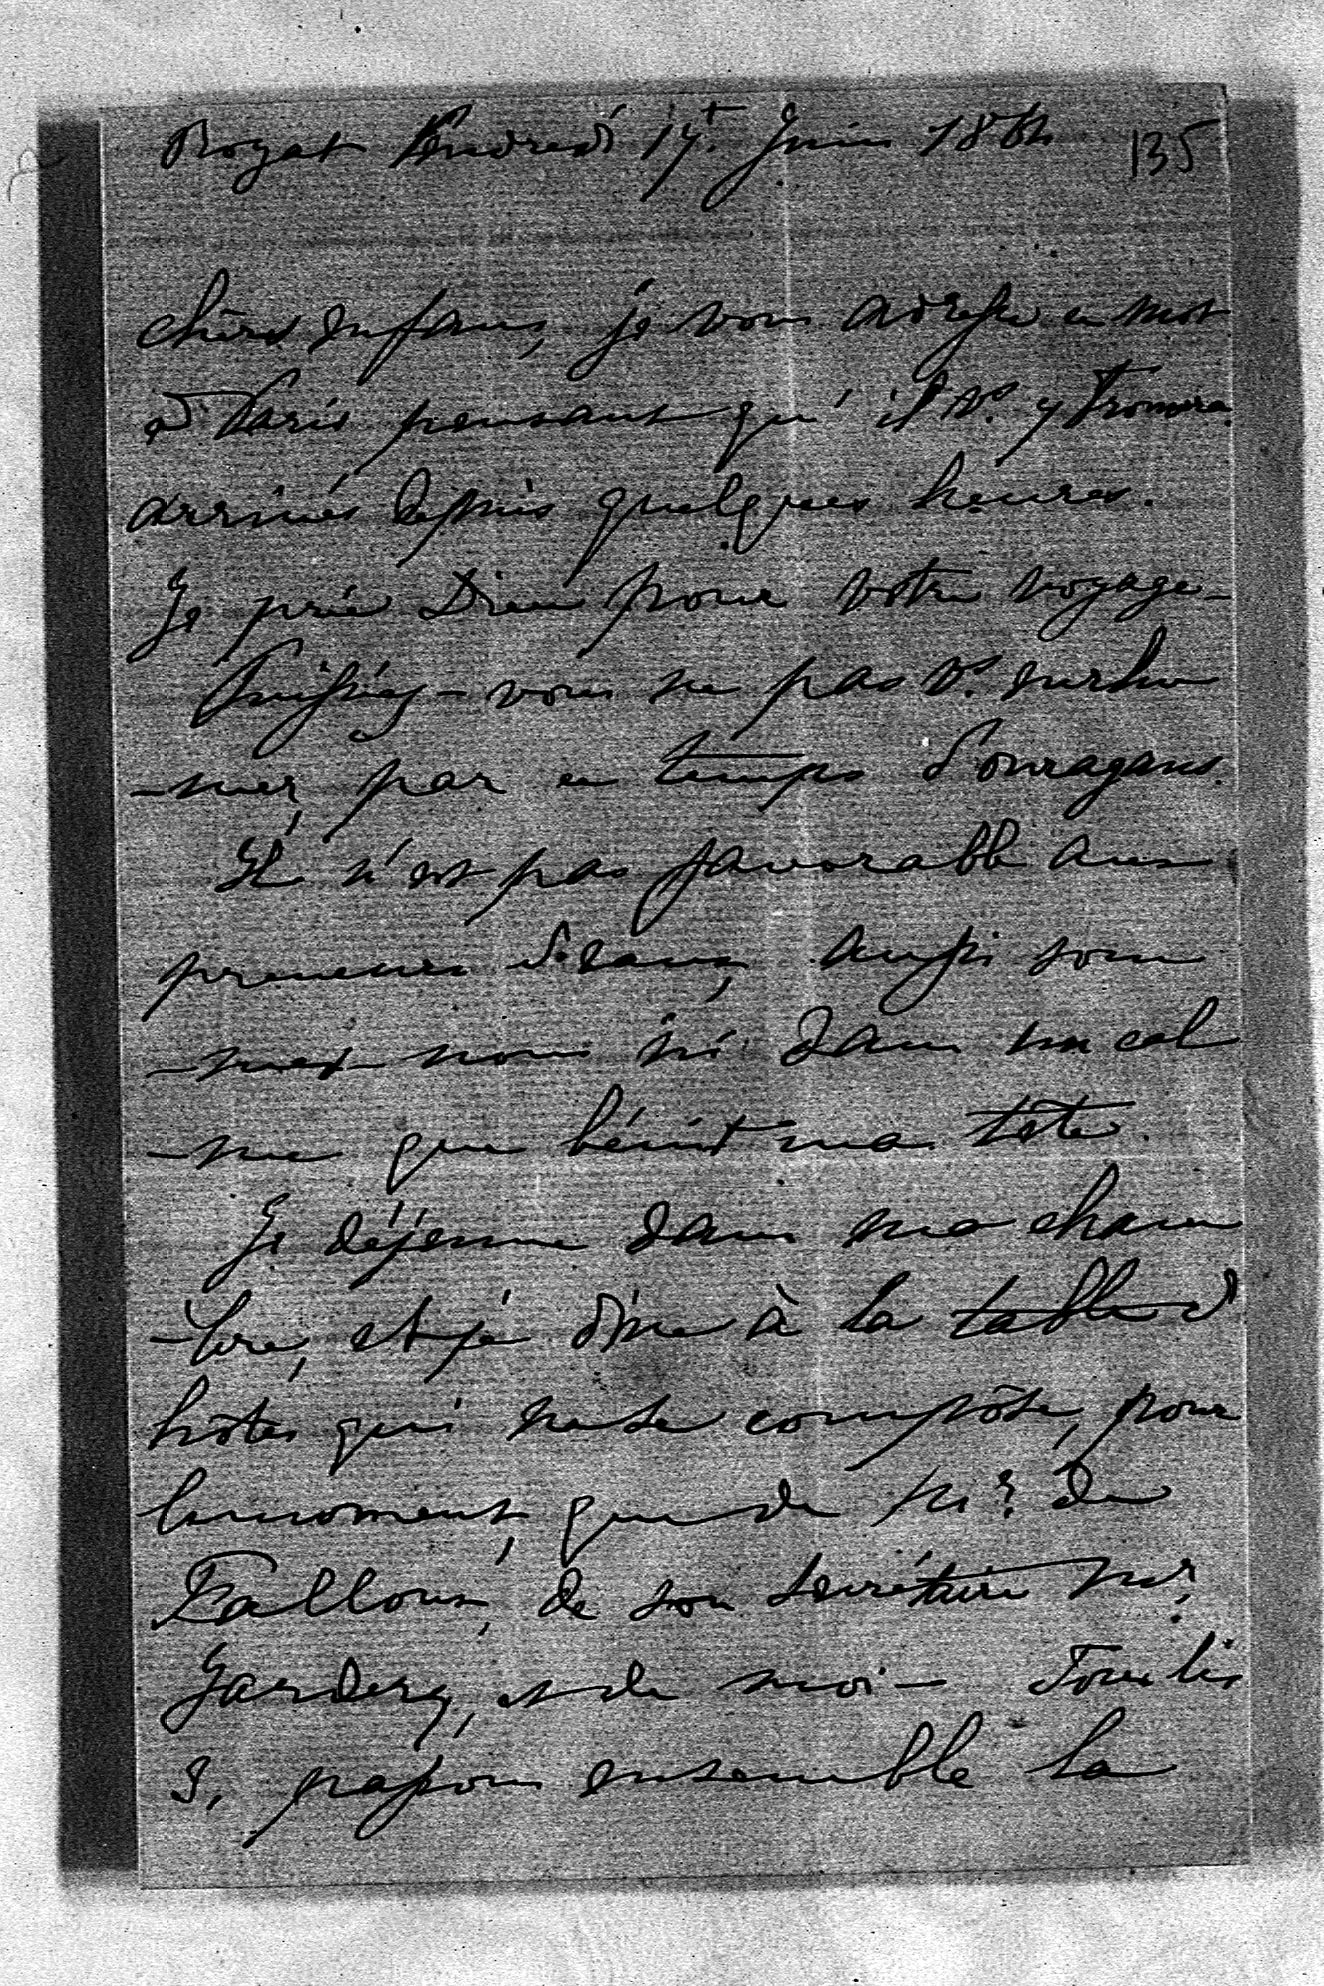 Royat Vendredi 17t. Juin 1864 135
chers enfans, je vous adresse ce mot
à Paris pensant qu'il vs. y trouvera
arrivés depuis quelques heures.
Je prie Dieu pour votre voyage -
Puissiez-vous ne pas vs. enrhu
-mer, par ce temps d'ouragans.
Il n'est pas favorable aux
preneurs d'eaux, aussi som
-mes-nous ici dans un cal
-me que bénit ma tête.
Je déjeune dans ma cham
-bre, et je dîne à la table d'
hôtes qui ne se compôse, pour
le moment, que de Mr. de
Falloux, de son secrétaire Mr.
Gardery, et de moi - Tous les
3, passons ensemble la